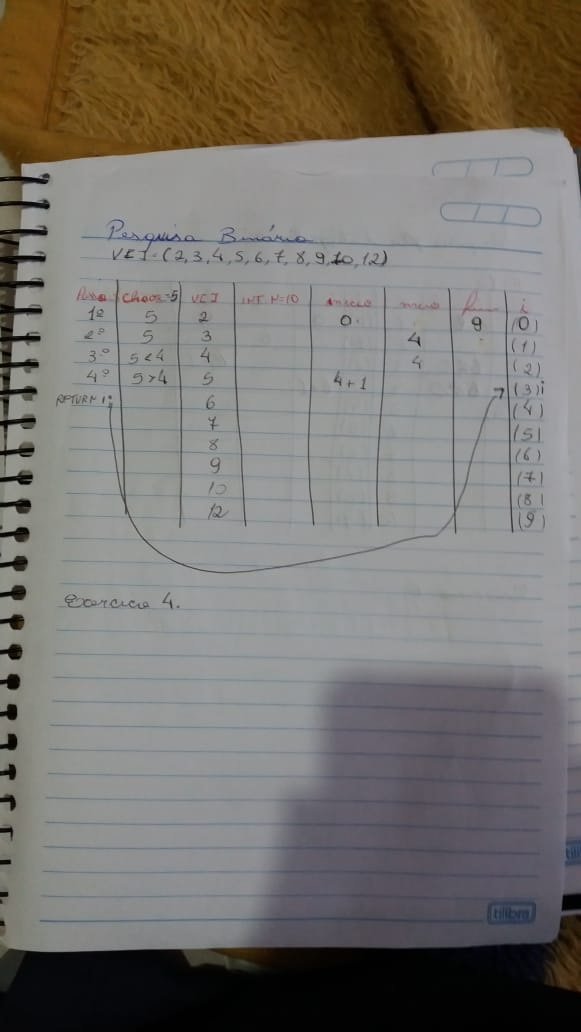 Pesquisa Binária
VEI = (2, 3, 4, 5, 6, 7, 8, 9, 10, 12)
Passo chave=5 VEI INT N=10 início meio fim i
1º 5 2 0 9 (0)
2º 5 3 4 (1)
3º 5<4 4 4 (2)
4º 5>4 5 4+1 (3)i
RETURN i 6 (4)
7 (5)
8 (6)
9 (7)
10 (8)
12 (9)
Exercicio 4.
tilibra